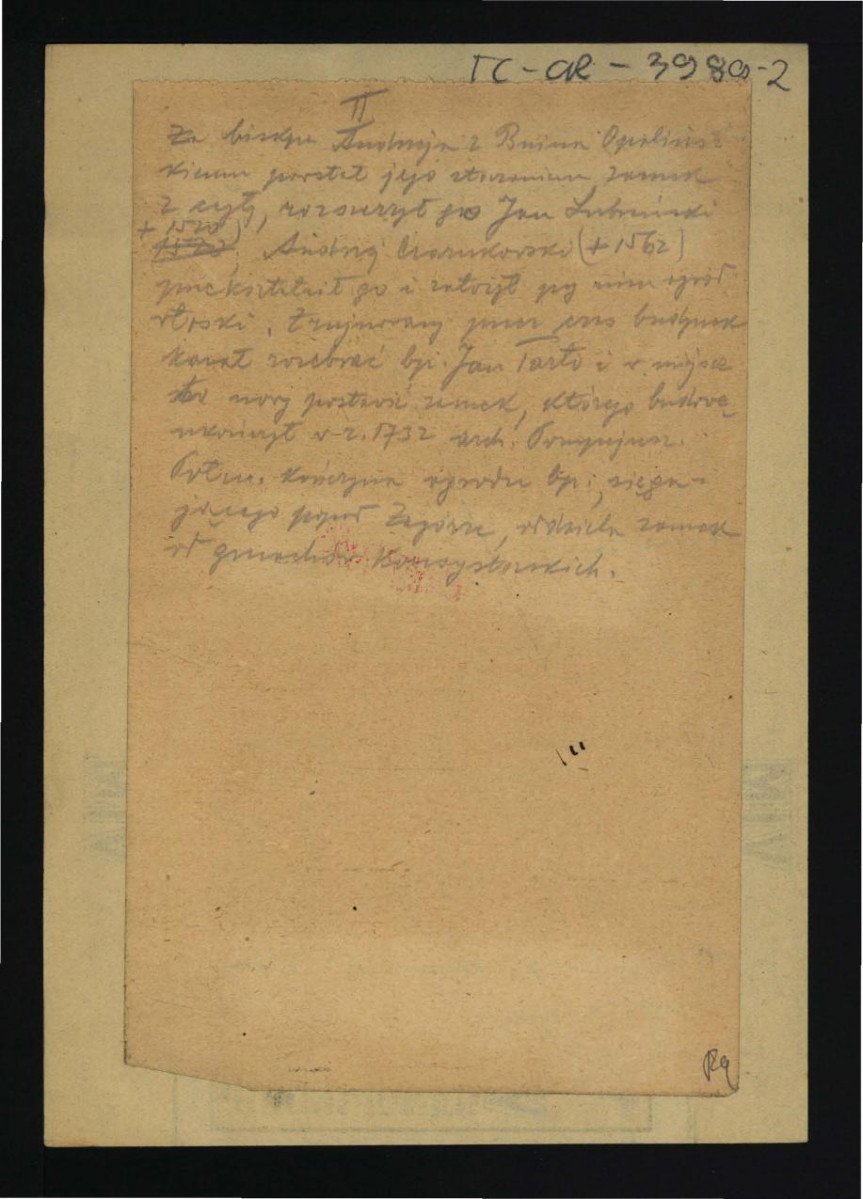 IC-OR-3980-2
II
Za biskupa Andrzeja z Bnina Opaliń-
skiego powstał jego staraniem zamek
z cegły, rozszerzył go Jan Lubrański
+ 1520)
1520, Andrzej Czarnkowski (+ 1562)
przekształcił go i założył przy nim ogród
włoski. Zrujnowany przez czas budynek
kazał rozebrać bp. Jan Tarło i w miejsce
to nowy postawić zamek, którego budowę
ukończył w r. 1732 arch. Pompejusz.
Połud. kończyna ogrodu bp., sięga-
jącego poprzed Zagórze, oddziela zamek
od gmachów Konsystorskich.
Rg